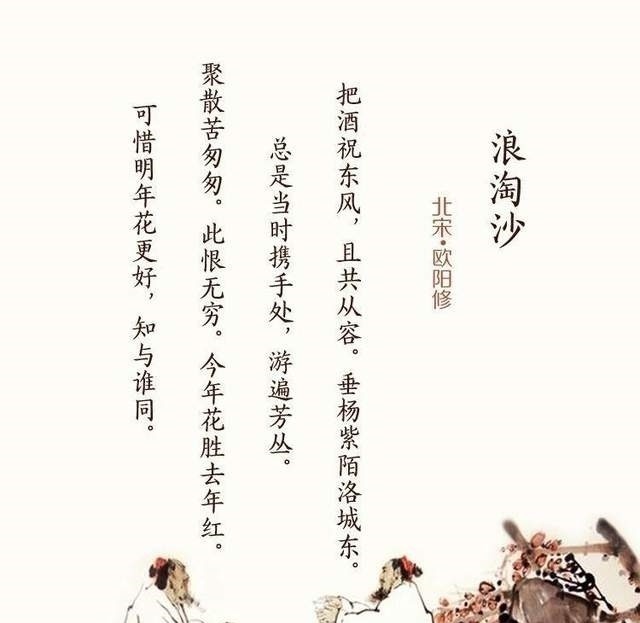 浪淘沙
北宋·欧阳修
把酒祝东风，且共从容。垂杨紫陌洛城东。
总是当时携手处，游遍芳丛。
聚散苦匆匆。此恨无穷。今年花胜去年红。
可惜明年花更好，知与谁同。